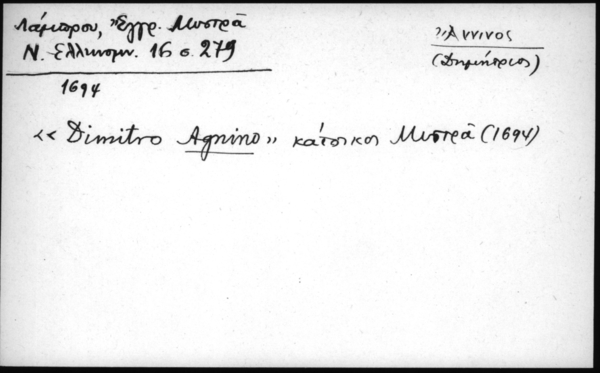 Λάμπρου, Ἔγγρ. Μυστρᾶ
Ν. Ἑλληνομν. 16 σ. 279
1694
Ἄννινος
(Δημήτριος)
«Dimitro Agnino» κάτοικος Μυστρᾶ (1694)